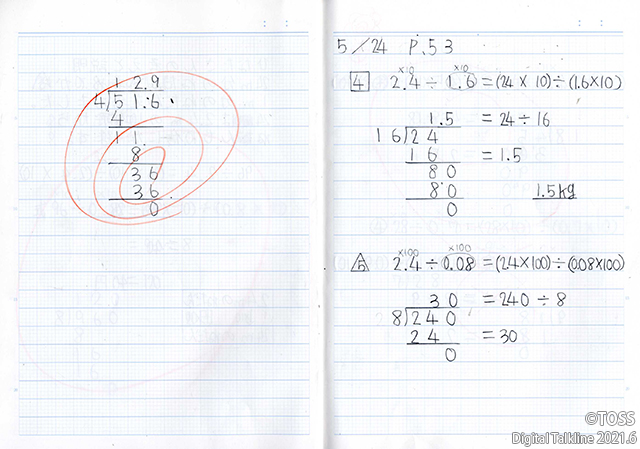 1 2.9
4)51.6
4
11
8
36
36
0
5/24 P.53
×10 ×10
4 2.4÷1.6=(24×10)÷(1.6×10)
1.5 =24÷16
16)24
16 =1.5
80
80 1.5kg
0
×100 ×100
5 2.4÷0.08=(2.4×100)÷(0.08×100)
30 =240÷8
8)240
24 =30
0
©TOSS
Digital Talkline 2021.6